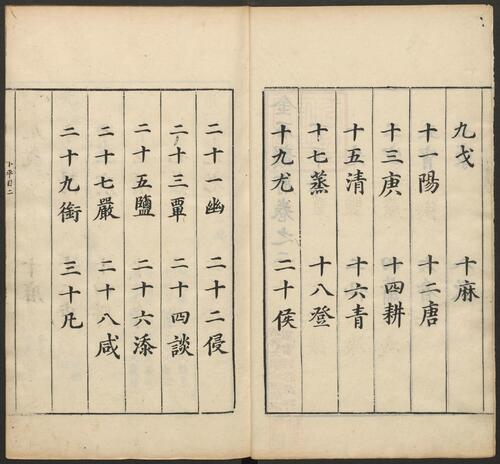 九戈 十麻
十一陽 十二唐
十三庚 十四耕
十五清 十六青
十七蒸 十八登
十九尤 二十侯
二十一幽 二十二侵
二十三覃 二十四談
二十五鹽 二十六添
二十七嚴 二十八咸
二十九銜 三十凡
下平目二